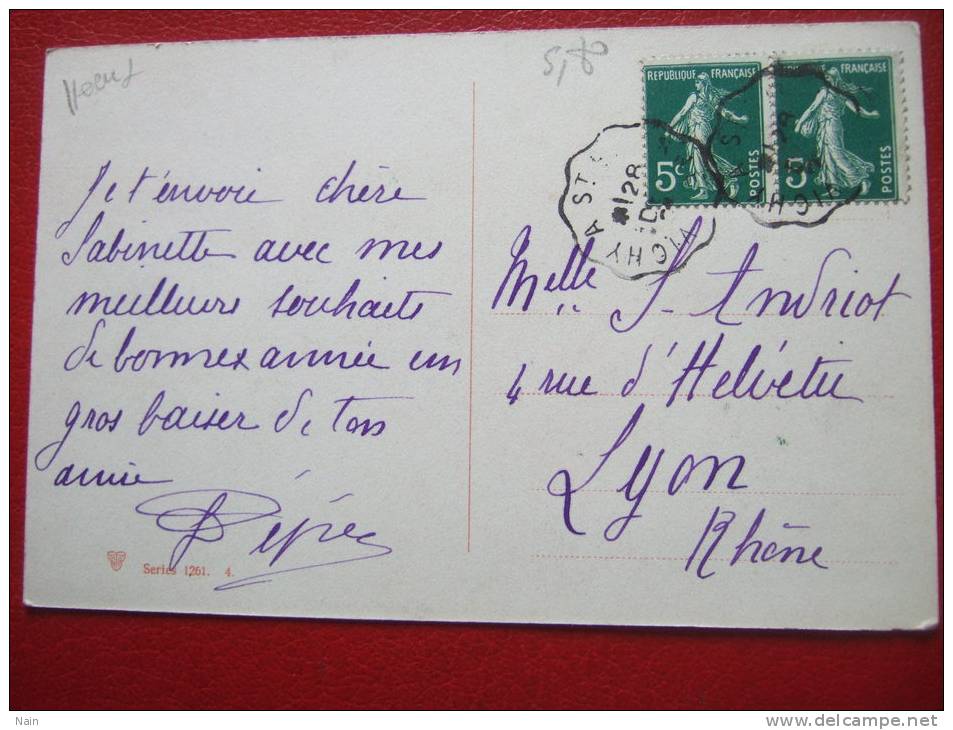 5,80
REPUBLIQUE FRANÇAISE
5c
POSTES
FRANÇAISE
5
POSTES
VICHY A ST
28
Je t'envoie chère
Sabinette avec mes
meilleurs souhaits
de bonnes année un
gros baiser de ton
amie
Melle S. Andriot
4 rue d'Helvétie
Lyon
Rhône
Series 1261. 4.
Nain
www.delcampe.net